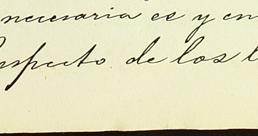 necesaria es y en
respecto de los